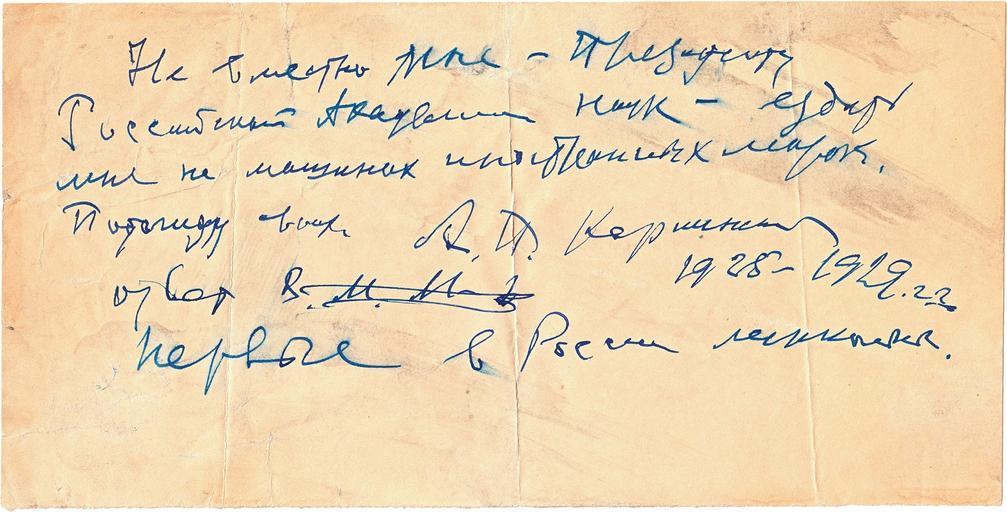 Не вместно мне – Президенту
Российской Академии наук – ездить
мне на машинах иностранных марок.
А. П. Карпинский
1928 – 1929 г.г.
ответ В. М. М
Первые в России